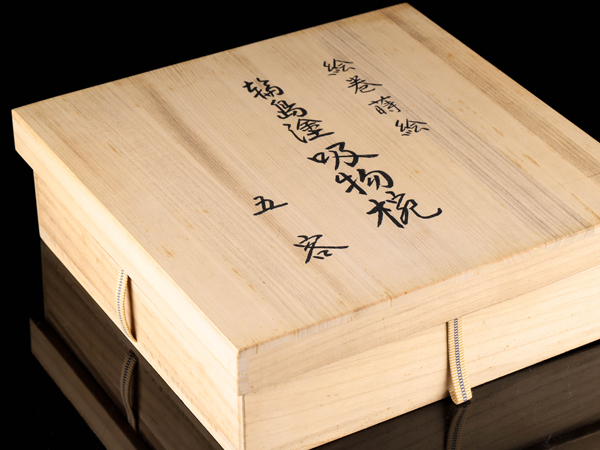 絵巻蒔絵
輪島塗吸物椀
五客